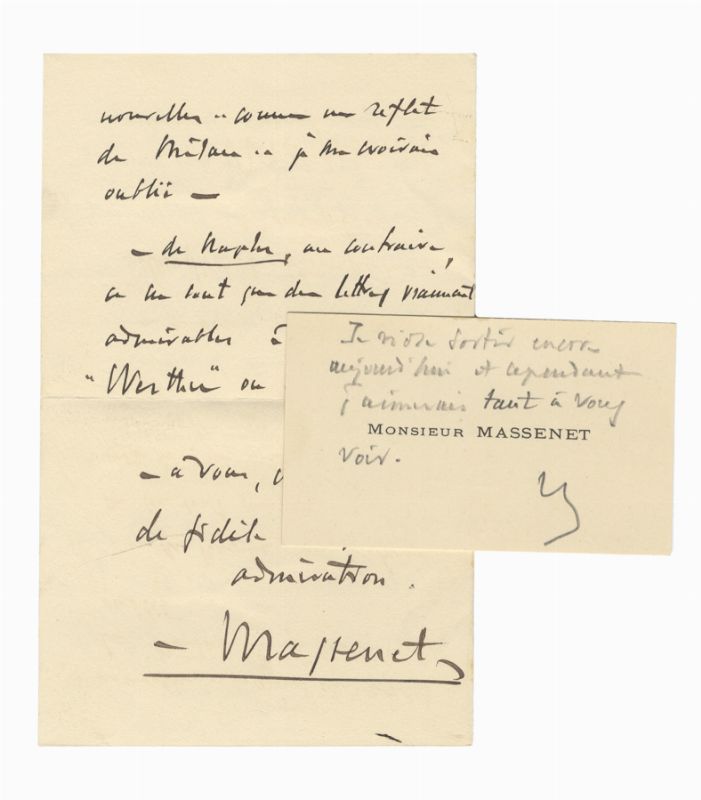 nouvelles .. comme un reflet
de Milan .. je me croirais
oublié —
— de Naples, au contraire,
ce ne sont que des lettres vraiment
admirables à
"Werther" ou
— à vous,
de fidèle
admiration.
— Massenet
Je n'ose sortir encore
aujourd'hui et cependant
j'aimerais tant à vous
MONSIEUR MASSENET
voir.